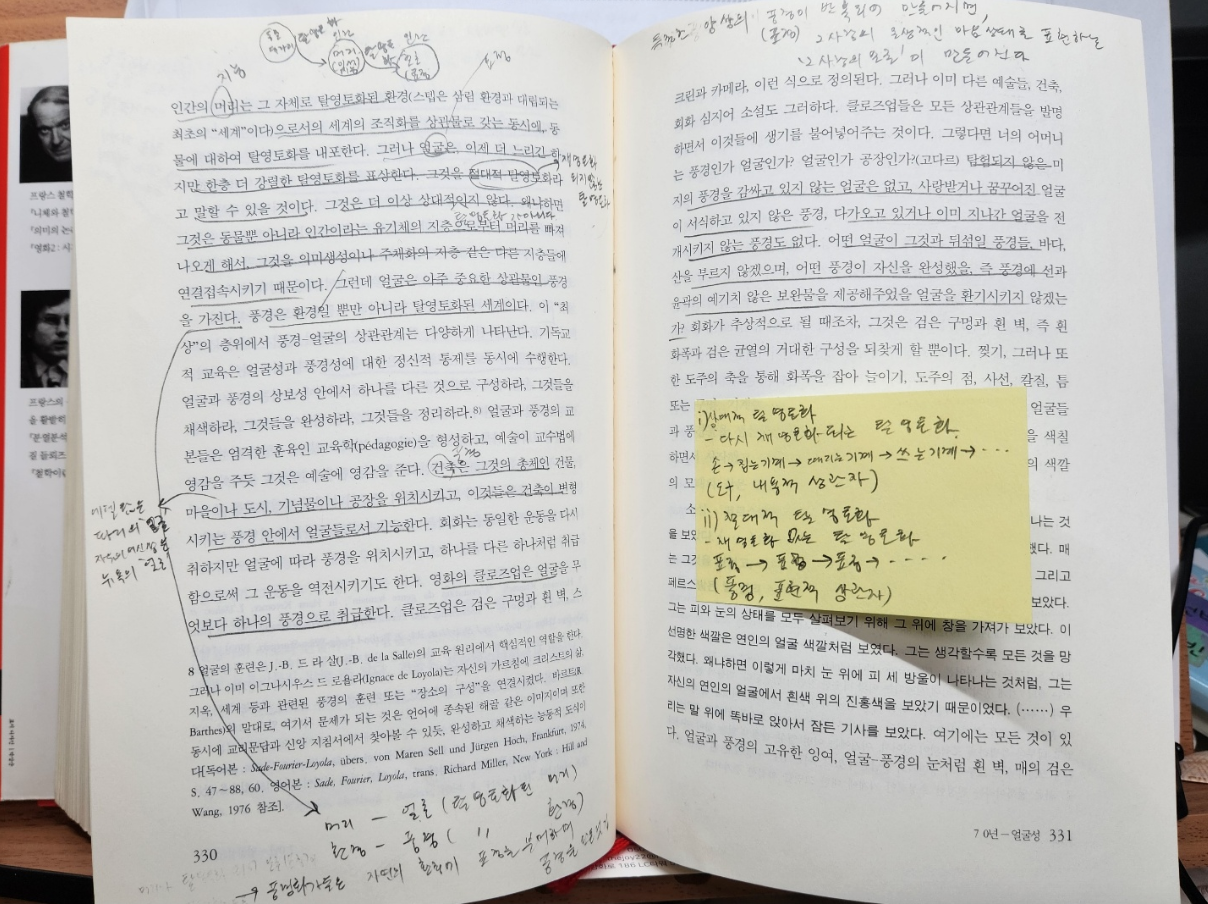 독특한 양상의 풍경이 반복되어 만들어지면,
(표정) 그 사람의 일생적인 마음 상태를 표현하는
'그 사람의 얼굴'이 만들어진다
지능
표정
인간의 머리는 그 자체로 탈영토화된 환경(스텝은 삼림 환경과 대립되는
최초의 “세계”이다)으로서의 세계의 조직화를 상관물로 갖는 동시에, 동
물에 대하여 탈영토화를 내포한다. 그러나 얼굴은, 이제 더 느리긴 하
지만 한층 더 강렬한 탈영토화를 표상한다. 그것은 절대적 탈영토화라
고 말할 수 있을 것이다. 그것은 더 이상 상대적이지 않다. 왜냐하면
그것은 동물뿐 아니라 인간이라는 유기체의 지층으로부터 머리를 빠져
나오게 해서, 그것을 의미생성이나 주체화의 지층 같은 다른 지층들에
연결접속시키기 때문이다. 그런데 얼굴은 아주 중요한 상관물인 풍경
을 가진다. 풍경은 환경일 뿐만 아니라 탈영토화된 세계이다. 이 “최
상”의 층위에서 풍경-얼굴의 상관관계는 다양하게 나타난다. 기독교
적 교육은 얼굴성과 풍경성에 대한 정신적 통제를 동시에 수행한다.
얼굴과 풍경의 상보성 안에서 하나를 다른 것으로 구성하라, 그것들을
채색하라, 그것들을 완성하라, 그것들을 정리하라.8) 얼굴과 풍경의 교
본들은 엄격한 훈육인 교육학(pédagogie)을 형성하고, 예술이 교수법에
영감을 주듯 그것은 예술에 영감을 준다. 건축은 그것의 총체인 건물,
마을이나 도시, 기념물이나 공장을 위치시키고, 이것들은 건축이 변형
시키는 풍경 안에서 얼굴들로서 기능한다. 회화는 동일한 운동을 다시
취하지만 얼굴에 따라 풍경을 위치시키고, 하나를 다른 하나처럼 취급
함으로써 그 운동을 역전시키기도 한다. 영화의 클로즈업은 얼굴을 무
엇보다 하나의 풍경으로 취급한다. 클로즈업은 검은 구멍과 흰 벽, 스
재영토화
되지 않는
탈영토화
에펠탑은
파리의 얼굴
자유의 여신상은
뉴욕의 얼굴
8 얼굴의 훈련은 J.-B. 드 라 살(J.-B. de la Salle)의 교육 원리에서 핵심적인 역할을 한다.
그러나 이미 이그나시우스 드 로욜라(Ignace de Loyola)는 자신의 가르침에 크리스트의 삶,
지옥, 세계 등과 관련된 풍경의 훈련 또는 “장소의 구성”을 연결시켰다. 바르트(R.
Barthes)의 말대로, 여기서 문제가 되는 것은 언어에 종속된 해골 같은 이미지이며 또한
동시에 교리문답과 신앙 지침서에서 찾아볼 수 있듯, 완성하고 채색하는 능동적 도식이
다[독어본 : Sade-Fourier-Loyola, übers. von Maren Sell und Jürgen Hoch, Frankfurt, 1974,
S. 47~88, 60. 영어본 : Sade, Fourier, Loyola, trans. Richard Miller, New York : Hill and
Wang, 1976 참조].
머리 - 얼굴 (탈영토화된 머리)
환경 - 풍경 ( 〃 환경)
→ 풍경화가들은 자연의 환경에 표정을 부여하며
330
크린과 카메라, 이런 식으로 정의된다. 그러나 이미 다른 예술들, 건축,
회화 심지어 소설도 그러하다. 클로즈업들은 모든 상관관계들을 발명
하면서 이것들에 생기를 불어넣어주는 것이다. 그렇다면 너의 어머니
는 풍경인가 얼굴인가? 얼굴인가 공장인가?(고다르) 탐험되자 않은 미
지의 풍경을 감싸고 있지 않는 얼굴은 없고, 사랑받거나 꿈꾸어진 얼굴
이 서식하고 있지 않은 풍경, 다가오고 있거나 이미 지나간 얼굴을 전
개시키지 않는 풍경도 없다. 어떤 얼굴이 그것과 뒤섞일 풍경들, 바다,
산을 부르지 않겠으며, 어떤 풍경이 자신을 완성했을, 즉 풍경에 선과
윤곽의 예기치 않은 보완물을 제공해주었을 얼굴을 환기시키지 않겠는
가? 회화가 추상적으로 될 때조차, 그것은 검은 구멍과 흰 벽, 즉 흰
화폭과 검은 균열의 거대한 구성을 되찾게 할 뿐이다. 찢기, 그러나 또
한 도주의 축을 통해 화폭을 잡아 늘이기, 도주의 점, 사선, 칼질, 틈
i) 상대적 탈영토화
- 다시 재영토화 되는 탈영토화
손 → 집는기계 → 때리는기계 → 쓰는기계 → ···
(도구, 내용적 상관자)
ii) 절대적 탈영토화
- 재영토화 없는 탈영토화
표정 → 표정 → 표정 → ····
(풍경, 표현적 상관자)
그는 피와 눈의 상태를 모두 살펴보기 위해 그 위에 창을 가져가 보았다. 이
선명한 색깔은 연인의 얼굴 색깔처럼 보였다. 그는 생각할수록 모든 것을 망
각했다. 왜냐하면 이렇게 마치 눈 위에 피 세 방울이 나타나는 것처럼, 그는
자신의 연인의 얼굴에서 흰색 위의 진홍색을 보았기 때문이었다. (……) 우
리는 말 위에 똑바로 앉아서 잠든 기사를 보았다. 여기에는 모든 것이 있
다. 얼굴과 풍경의 고유한 잉여, 얼굴-풍경의 눈처럼 흰 벽, 매의 검은
7 0년 - 얼굴성 331